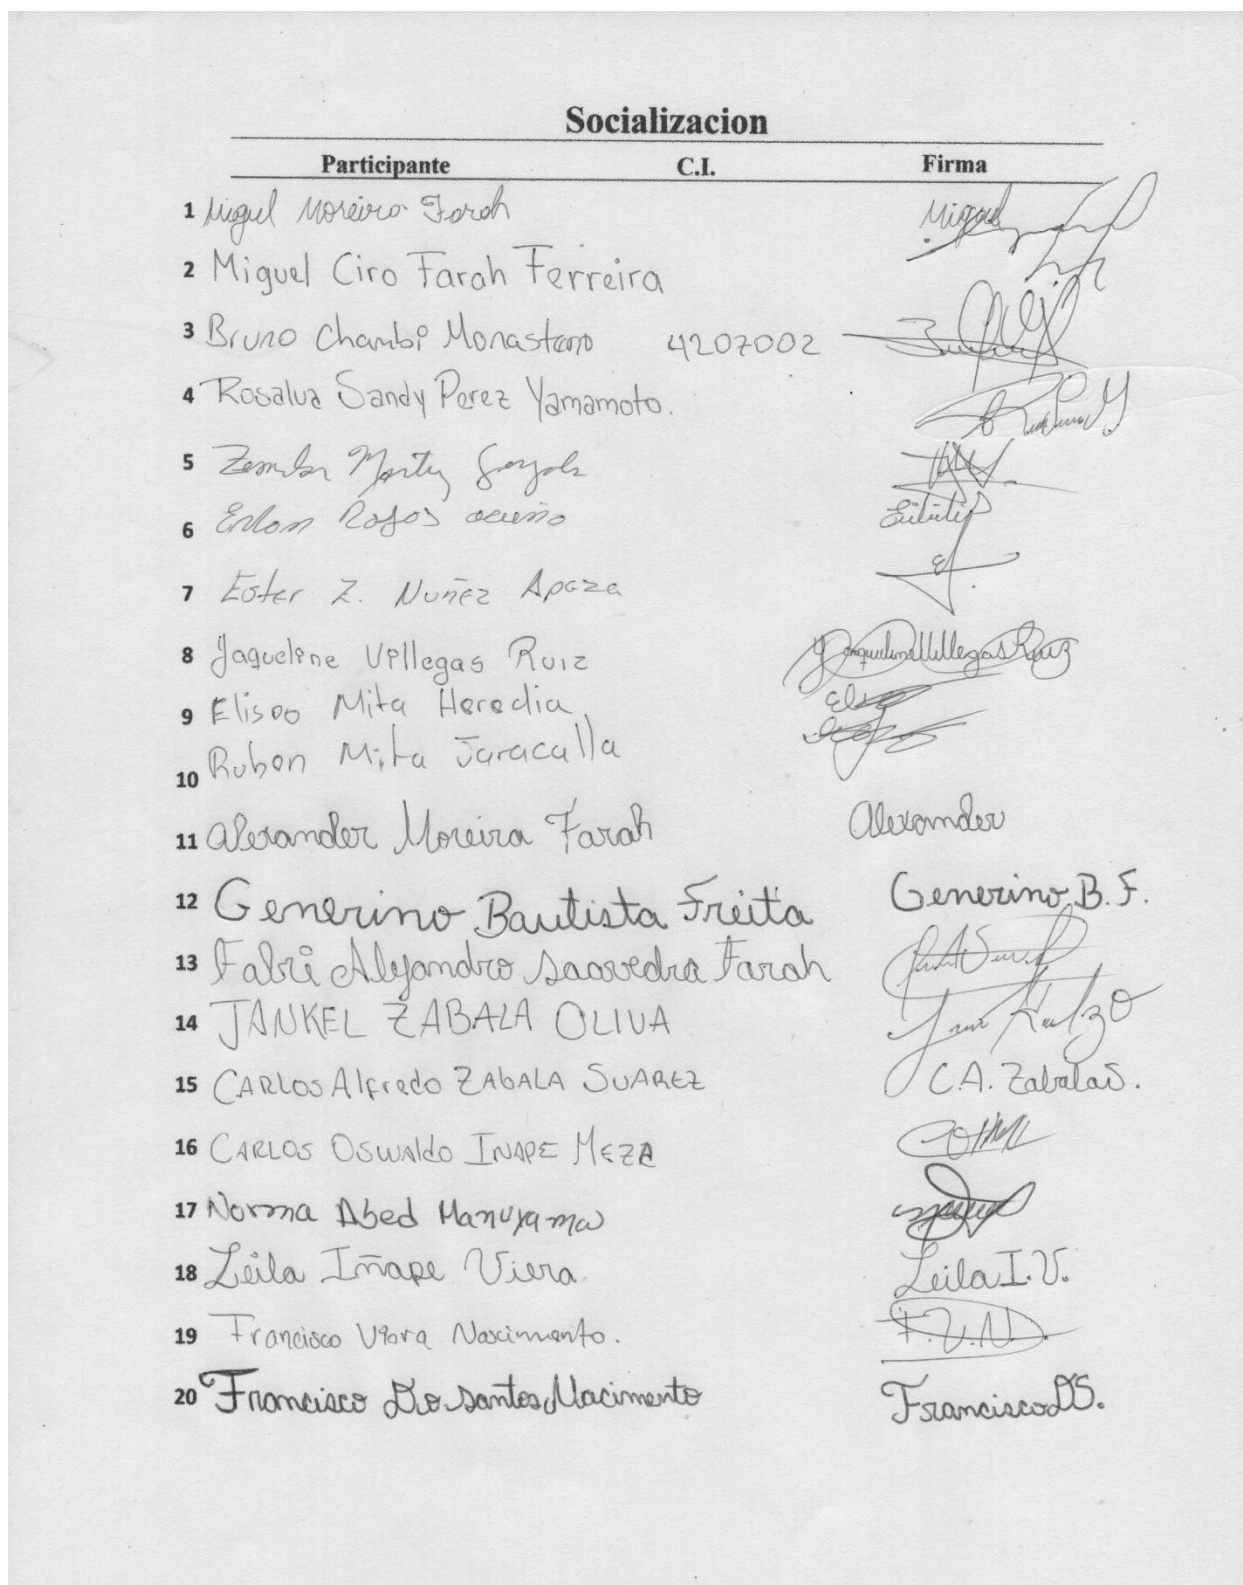 Socializacion
Participante C.I. Firma
1 Miguel Moreira Farah Miguel
2 Miguel Ciro Farah Ferreira
3 Bruno Chambi Monasterio 4207002
4 Rosalva Sandy Perez Yamamoto.
5
6 Rojas
7 Ester Z. Nuñez Apaza
8 Jaqueline Villegas Ruiz Jaqueline Villegas Ruiz
9 Eliseo Mita Heredia
10 Ruben Mita Jaracalla
11 Alexander Moreira Farah Alexander
12 Generino Bautista Freita Generino B. F.
13 Fabri Alejandro Saavedra Farah
14 JANKEL ZABALA OLIVA
15 CARLOS Alfredo ZABALA SUAREZ C.A. Zabala S.
16 CARLOS OSWALDO INAPE MEZA
17 Norma Abed Manuyama
18 Leila Iñape Viera. Leila I. V.
19 Francisco Viera Nascimento. F.V.N.
20 Francisco Do santos Nacimento Francisco DS.